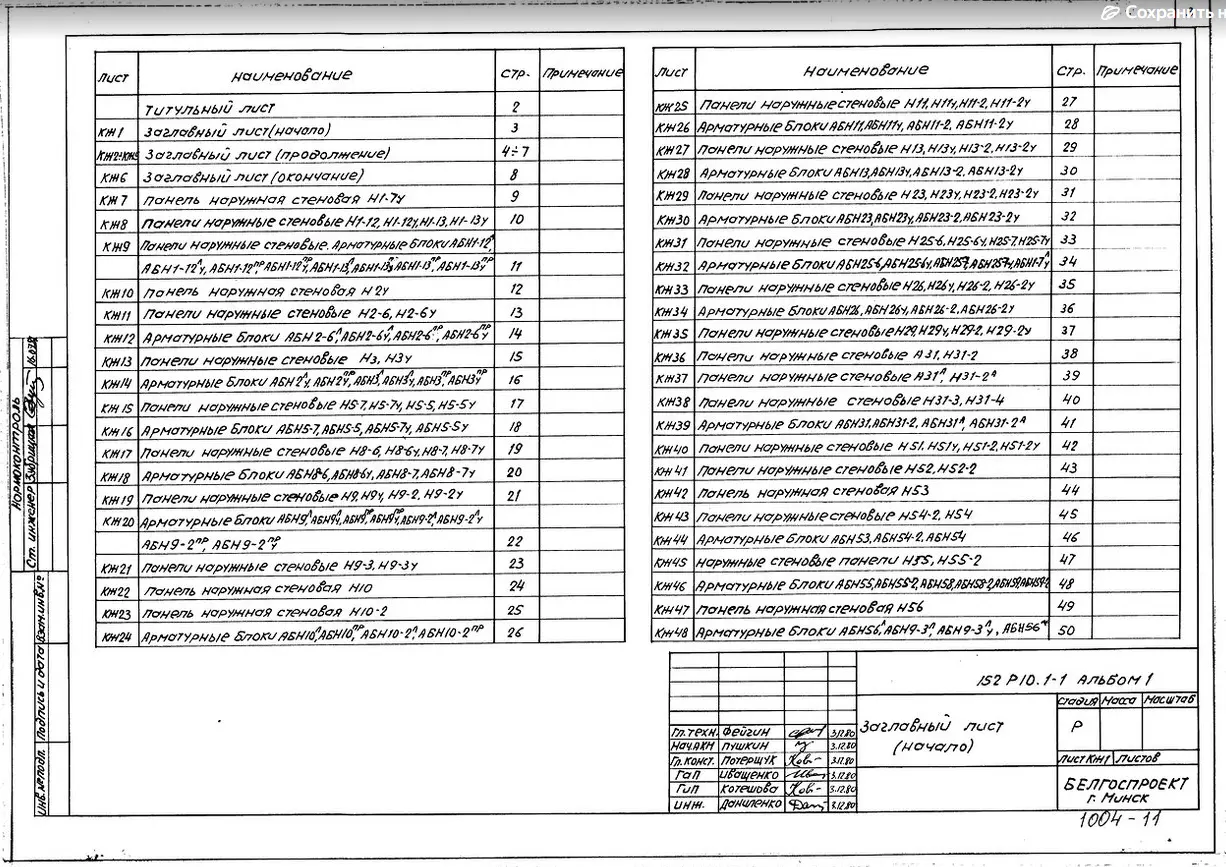 Сохранить н
Лист Наименование Стр. Примечание
Титульный лист 2
КЖ1 Заглавный лист (начало) 3
КЖ2÷КЖ5 Заглавный лист (продолжение) 4÷7
КЖ6 Заглавный лист (окончание) 8
КЖ7 Панель наружная стеновая Н1-7у 9
КЖ8 Панели наружные стеновые Н1-12, Н1-12у, Н1-13, Н1-13у 10
КЖ9 Панели наружные стеновые. Арматурные блоки АБН1-12л,
АБН1-12лу, АБН1-12пр, АБН1-12пру, АБН1-13л, АБН1-13лу, АБН1-13пр, АБН1-13пру 11
КЖ10 Панель наружная стеновая Н2у 12
КЖ11 Панели наружные стеновые Н2-6, Н2-6у 13
КЖ12 Арматурные блоки АБН2-6л, АБН2-6лу, АБН2-6пр, АБН2-6пру 14
КЖ13 Панели наружные стеновые Н3, Н3у 15
КЖ14 Арматурные блоки АБН2лу, АБН2пру, АБН3л, АБН3лу, АБН3пр, АБН3пру 16
КЖ15 Панели наружные стеновые Н5-7, Н5-7у, Н5-5, Н5-5у 17
КЖ16 Арматурные блоки АБН5-7, АБН5-5, АБН5-7у, АБН5-5у 18
КЖ17 Панели наружные стеновые Н8-6, Н8-6у, Н8-7, Н8-7у 19
КЖ18 Арматурные блоки АБН8-6, АБН8-6у, АБН8-7, АБН8-7у 20
КЖ19 Панели наружные стеновые Н9, Н9у, Н9-2, Н9-2у 21
КЖ20 Арматурные блоки АБН9л, АБН9лу, АБН9пр, АБН9пру, АБН9-2л, АБН9-2лу
АБН9-2пр, АБН9-2пру 22
КЖ21 Панели наружные стеновые Н9-3, Н9-3у 23
КЖ22 Панель наружная стеновая Н10 24
КЖ23 Панель наружная стеновая Н10-2 25
КЖ24 Арматурные блоки АБН10л, АБН10пр, АБН10-2л, АБН10-2пр 26
Лист Наименование Стр. Примечание
КЖ25 Панели наружные стеновые Н11, Н11у, Н11-2, Н11-2у 27
КЖ26 Арматурные блоки АБН11, АБН11у, АБН11-2, АБН11-2у 28
КЖ27 Панели наружные стеновые Н13, Н13у, Н13-2, Н13-2у 29
КЖ28 Арматурные блоки АБН13, АБН13у, АБН13-2, АБН13-2у 30
КЖ29 Панели наружные стеновые Н23, Н23у, Н23-2, Н23-2у 31
КЖ30 Арматурные блоки АБН23, АБН23у, АБН23-2, АБН23-2у 32
КЖ31 Панели наружные стеновые Н25-6, Н25-6у, Н25-7, Н25-7у 33
КЖ32 Арматурные блоки АБН25-6, АБН25-6у, АБН25-7, АБН25-7у, АБН1-7лу 34
КЖ33 Панели наружные стеновые Н26, Н26у, Н26-2, Н26-2у 35
КЖ34 Арматурные блоки АБН26, АБН26у, АБН26-2, АБН26-2у 36
КЖ35 Панели наружные стеновые Н29, Н29у, Н29-2, Н29-2у 37
КЖ36 Панели наружные стеновые Н31, Н31-2 38
КЖ37 Панели наружные стеновые Н31л, Н31-2л 39
КЖ38 Панели наружные стеновые Н31-3, Н31-4 40
КЖ39 Арматурные блоки АБН31, АБН31-2, АБН31л, АБН31-2л 41
КЖ40 Панели наружные стеновые Н51, Н51у, Н51-2, Н51-2у 42
КЖ41 Панели наружные стеновые Н52, Н52-2 43
КЖ42 Панель наружная стеновая Н53 44
КЖ43 Панели наружные стеновые Н54-2, Н54 45
КЖ44 Арматурные блоки АБН53, АБН54-2, АБН54 46
КЖ45 Наружные стеновые панели Н55, Н55-2 47
КЖ46 Арматурные блоки АБН55, АБН55-2, АБН58, АБН58-2, АБН59, АБН59-2 48
КЖ47 Панель наружная стеновая Н56 49
КЖ48 Арматурные блоки АБН56л, АБН9-3л, АБН9-3лу, АБН56 50
Нормоконтроль
Ст. инженер
16.03.82
Инв. № подл. Подпись и дата Взам. инв. №
152 Р10.1-1 Альбом 1
Гл. техн. Фейгин 3.12.80
Нач. АКМ Пушкин 3.12.80
Гл. конст. Потерщук 3.12.80
ГАП Иващенко 3.12.80
ГИП Котешова 3.12.80
Инж. Даниленко 3.12.80
Заглавный лист
(начало)
Стадия Масса Масштаб
Р
Лист КЖ1 Листов
БЕЛГОСПРОЕКТ
г. Минск
1004-11